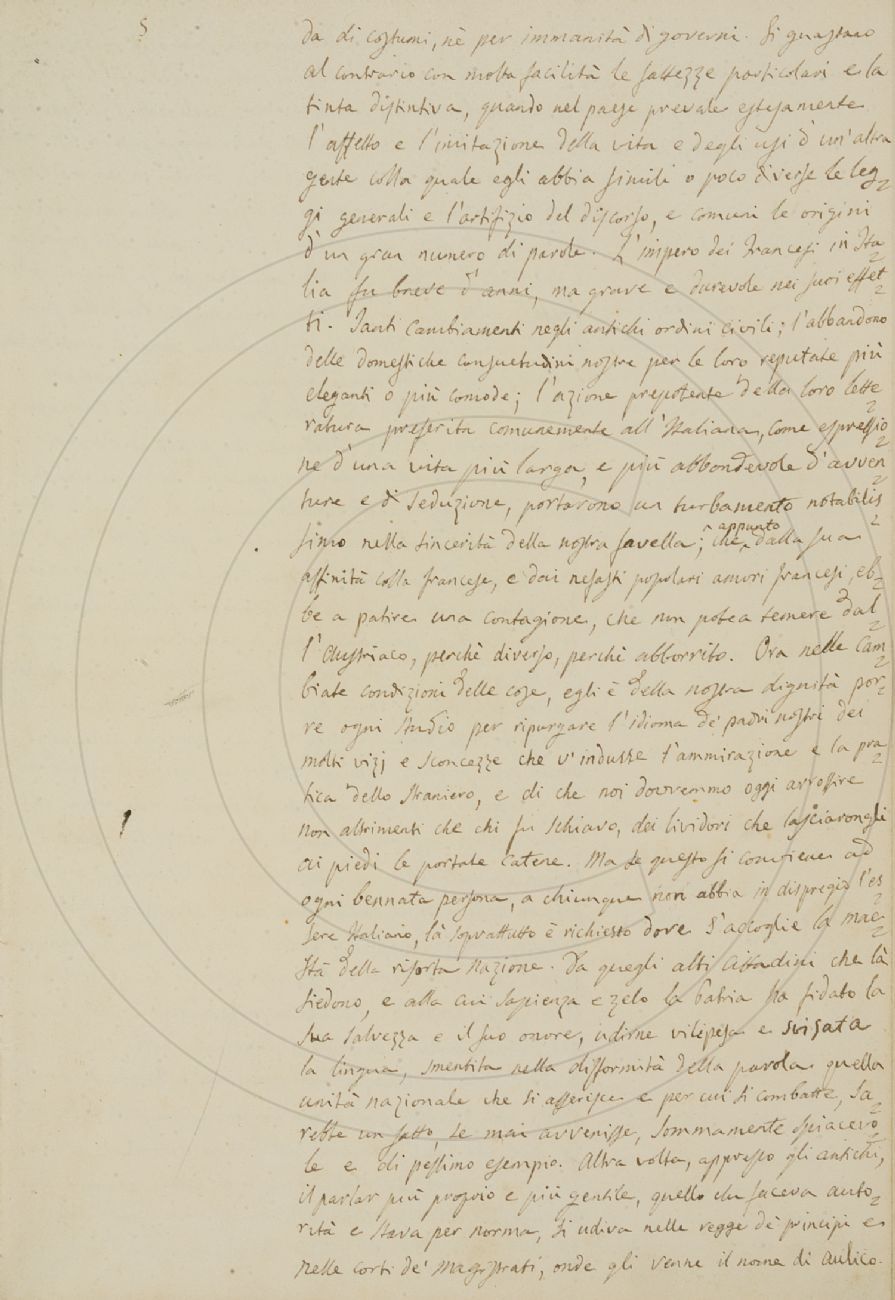 5
da di costumi, nè per immanità di governi. Si guastano
al contrario con molta facilità le fattezze particolari e la
tinta distintiva, quando nel paese prevale estesamente
l'affetto e l'imitazione della vita e degli usi d'un'altra
gente colla quale egli abbia simili o poco diverse le leg=
gi generali e l'artifizio del discorso, e comuni le origini
d'un gran numero di parole. L'impero dei Francesi in Ita=
lia fu breve d'anni, ma grave e durevole nei suoi effet=
ti. Tanti cambiamenti negli antichi ordini civili; l'abbandono
delle domestiche consuetudini nostre per le loro reputate più
eleganti o più comode; l'azione prepotente della loro lette=
ratura preferita comunemente all'Italiana, come espressio=
ne d'una vita più larga, e più abbondevole d'avven=
ture e di seduzione, portarono un turbamento notabilis=
simo nella sincerità della nostra favella; che appunto dalla sua
affinità colla francese, e dai nefasti popolari amori francesi, eb=
be a patire una contagione, che non potea temere dal=
l'Austriaco, perchè diverso, perchè abborrito. Ora nelle cam=
biate condizioni delle cose, egli è della nostra dignità por=
re ogni studio per ripurgare l'idioma de' padri nostri dei
molti vizj e sconcezze che v'indusse l'ammirazione e la pra=
tica dello straniero, e di che noi dovremmo oggi arrossire
non altrimenti che chi fu schiavo, dei lividori che lasciarongli
ai piedi le portate catene. Ma se questo si conviene ad
ogni bennata persona, a chiunque non abbia in dispregio l'es=
sere Italiano, là soprattutto è richiesto dove s'accoglie la mae=
stà della risorta Nazione. Da quegli alti Cittadini che là
siedono, e alla cui sapienza e zelo la Patria ha fidato la
sua salvezza e il suo onore, udirne vilipesa e svisata
la lingua, smentita nella difformità della parola quella
unità nazionale che si asserisce e per cui si combatte, sa=
rebbe un fatto, se mai avvenisse, sommamente spiacevo=
le e di pessimo esempio. Altra volta, appresso gli antichi,
il parlar più proprio e più gentile, quello che faceva auto=
rità e stava per norma, si udiva nelle regge de' principi e
nelle corti de' Magistrati, onde gli venne il nome di aulico.